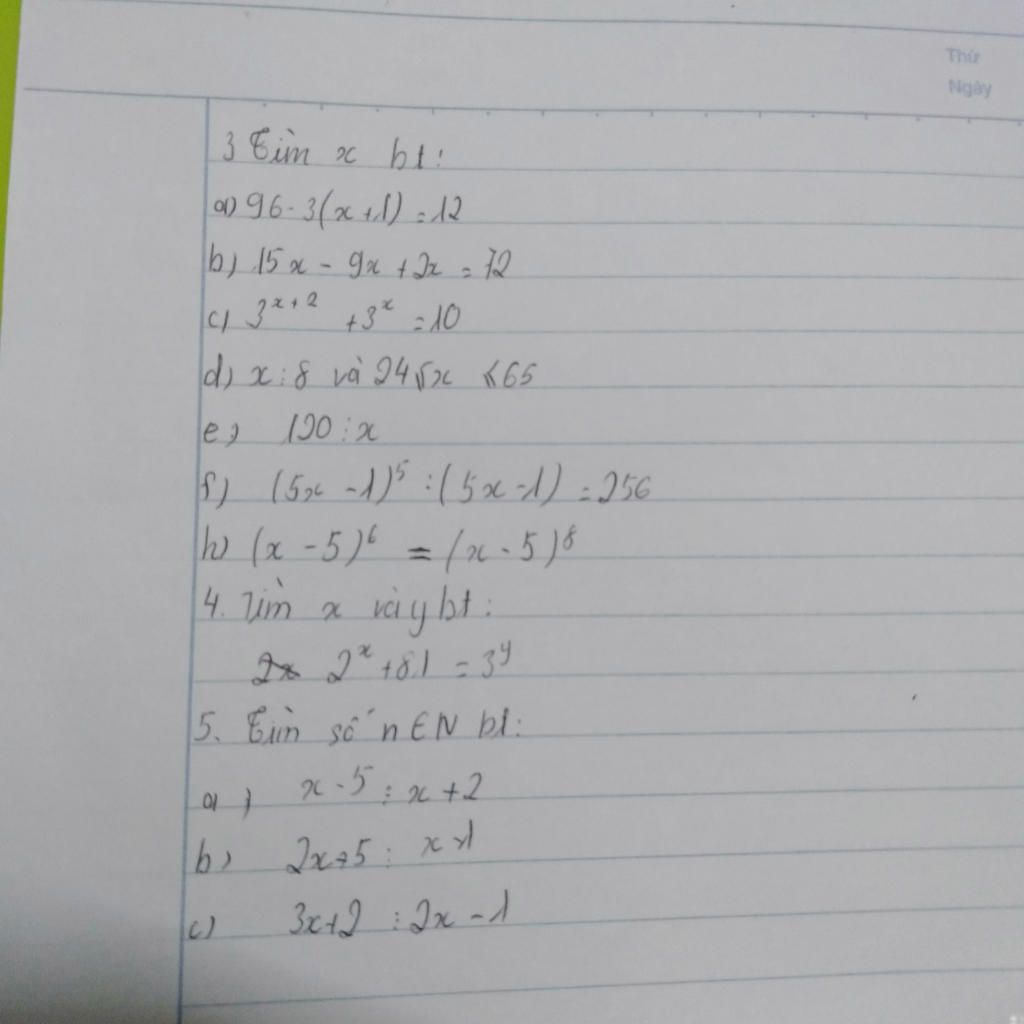 Thứ
Ngày
3 Tìm x bt:
a) 96 - 3(x+1) = 12
b) 15x - 9x + 2x = 72
c) 3^{x+2} + 3^x = 10
d) x ⋮ 8 và 24 ≤ x ≤ 65
e) 120 ⋮ x
f) (5x - 1)^5 : (5x - 1) = 256
h) (x - 5)^6 = (x - 5)^8
4. Tìm x và y bt:
2^x + 81 = 3^y
5. Tìm số n ∈ N bt:
a) x - 5 ⋮ x + 2
b) 2x + 5 ⋮
c) 3x + 2 ⋮ 2x - 1